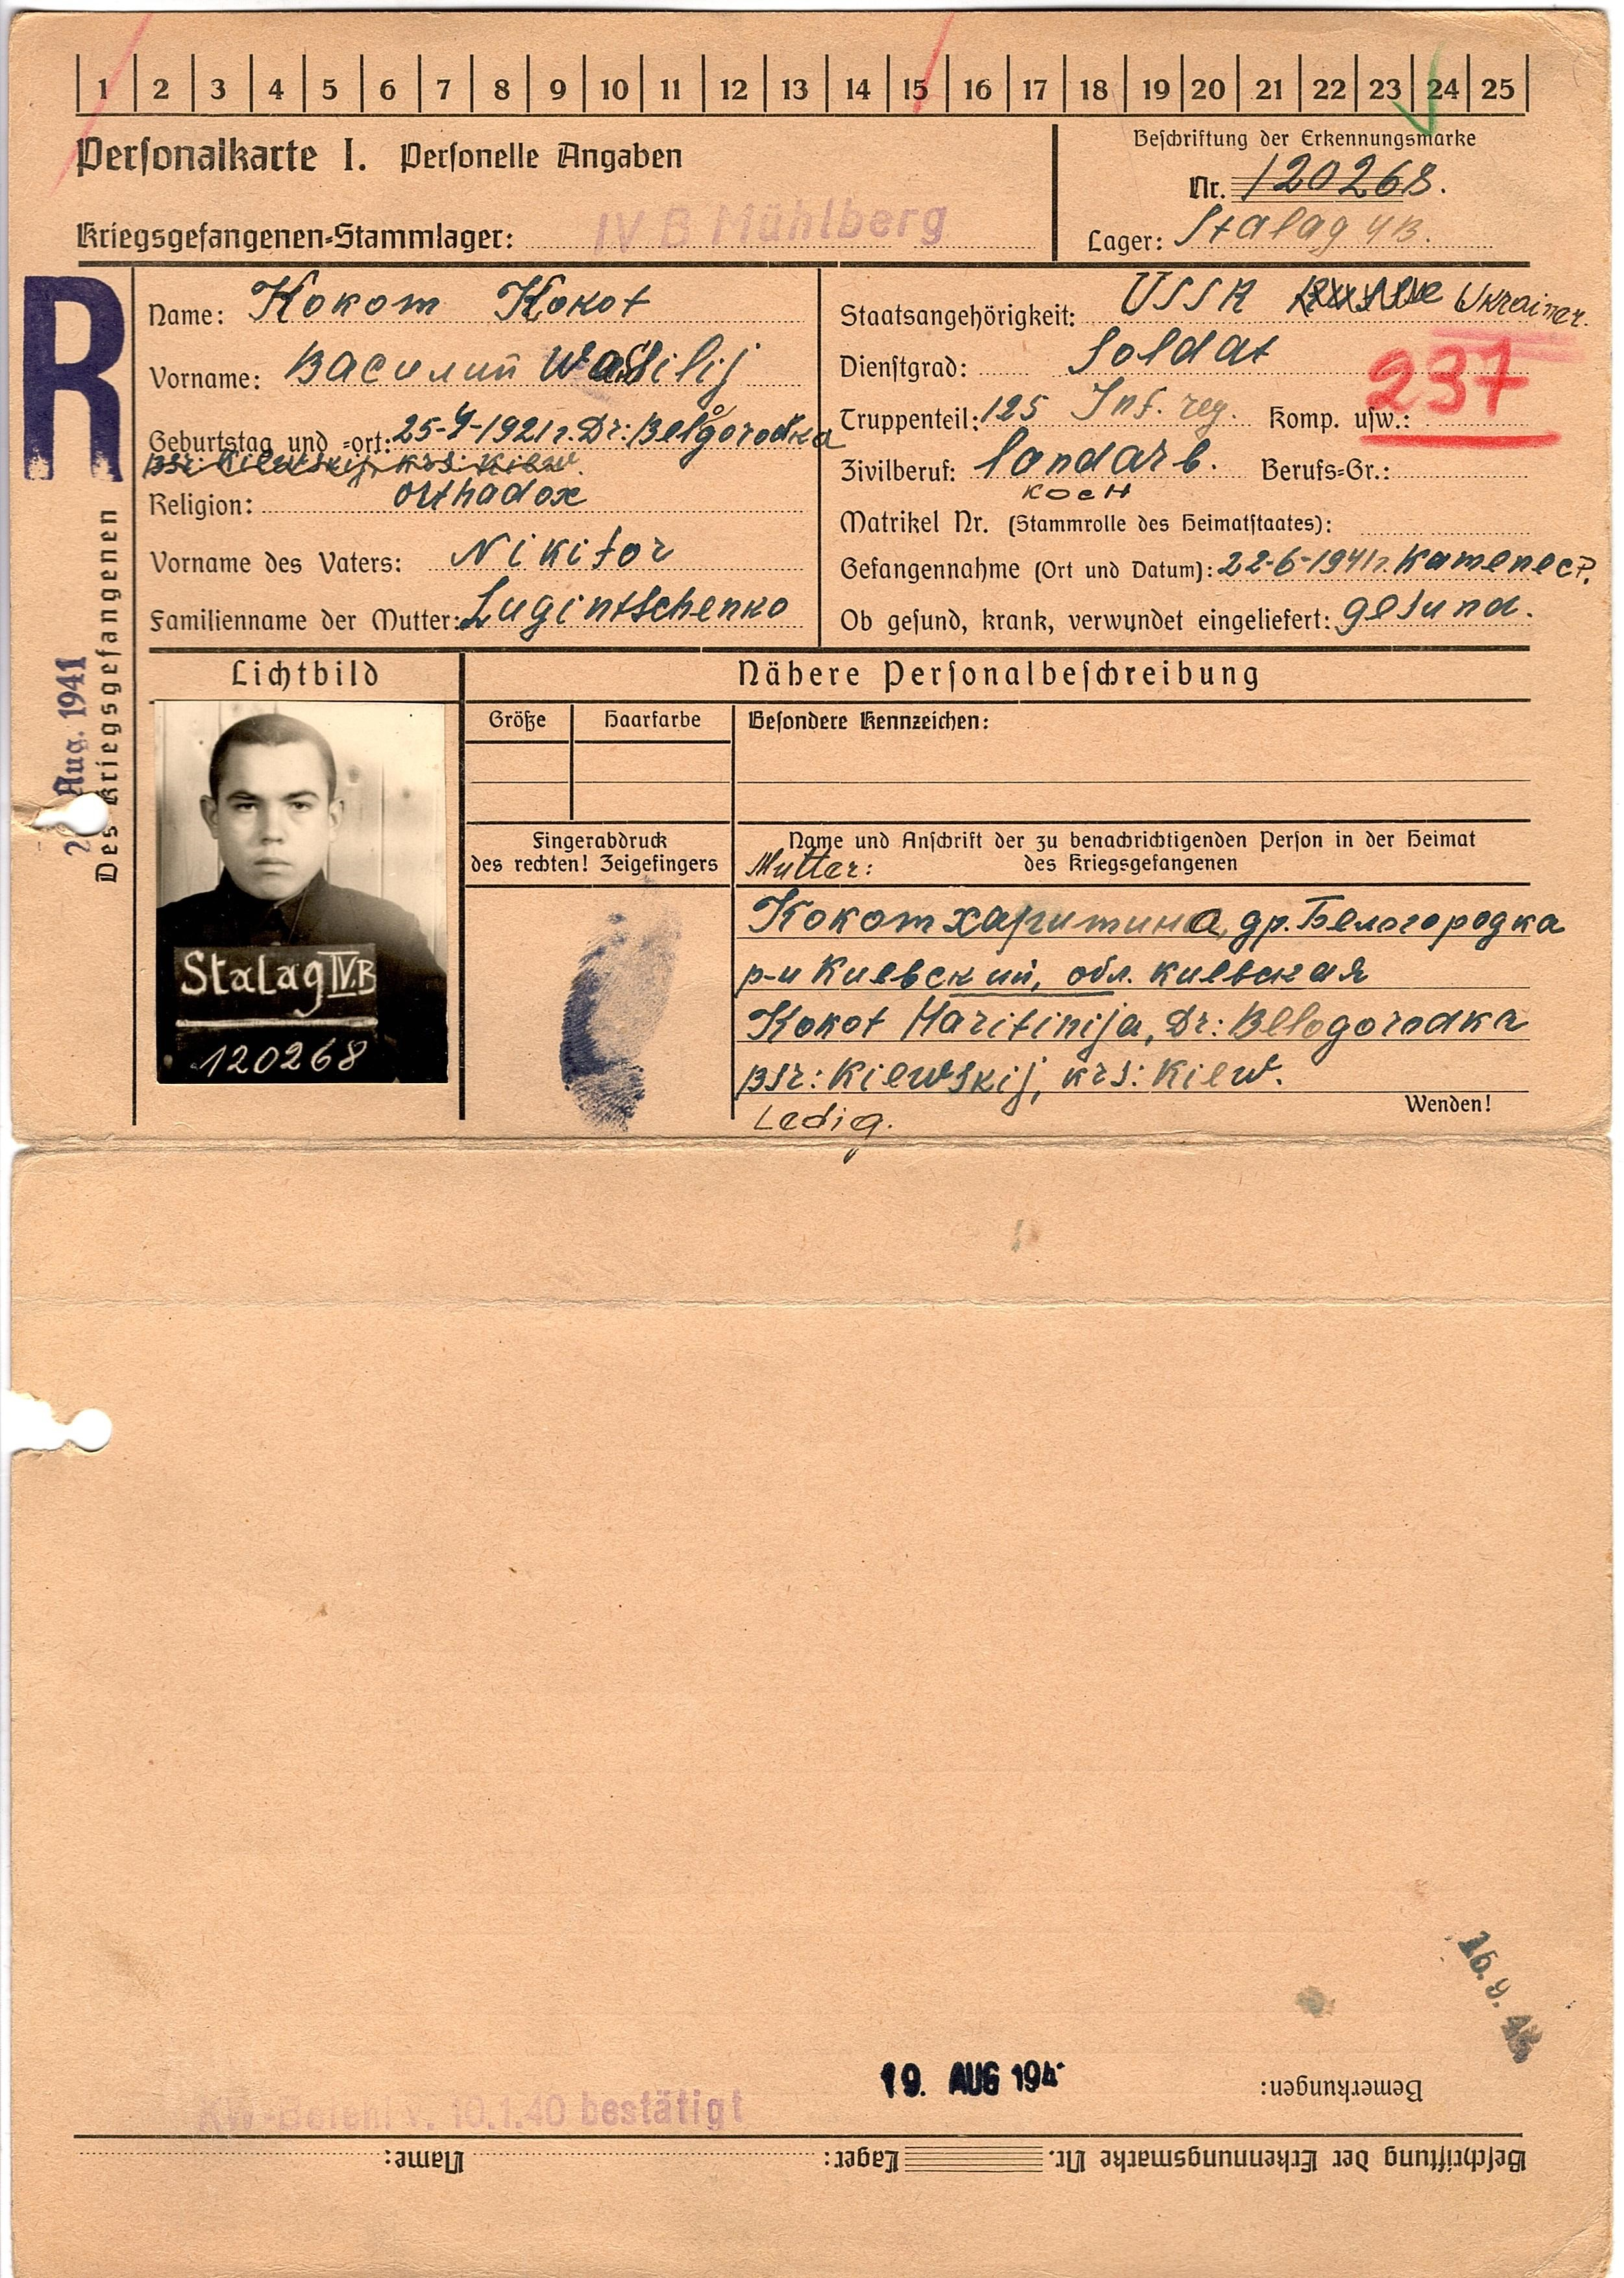 1 2 3 4 5 6 7 8 9 10 11 12 13 14 15 16 17 18 19 20 21 22 23 24 25
Personalkarte I. Personelle Angaben
Beschriftung der Erkennungsmarke
Nr. 120268.
Kriegsgefangenen-Stammlager: IV B Mühlberg
Lager: Stalag 4B.
R
Des Kriegsgefangenen
Aug. 1941
Name: Кокот Kokot
Vorname: Василий Wassilij
Geburtstag und -ort: 25-4-1921 r. Dr: Belgorodka
Bsr: Kiewskij, krs: Kiew.
Religion: orthadox
Vorname des Vaters: Nikifor
Familienname der Mutter: Lugintschenko
Staatsangehörigkeit: USSR Ukrainer.
Dienstgrad: Soldat
237
Truppenteil: 125 Inf. reg. Komp. usw.:
Zivilberuf: landarb. Berufs-Gr.:
Koch
Matrikel Nr. (Stammrolle des Heimatstaates):
Gefangennahme (Ort und Datum): 22-6-1941 r. Kamenec P.
Ob gesund, krank, verwundet eingeliefert: gesund.
Lichtbild
StaLag IV.B
120268
Nähere Personalbeschreibung
Größe Haarfarbe Besondere Kennzeichen:
Fingerabdruck
des rechten! Zeigefingers
Name und Anschrift der zu benachrichtigenden Person in der Heimat
des Kriegsgefangenen
Mutter:
Кокот Харитина, др. Белогородка
р-н Киевский, обл. Киевская
Kokot Haritinija, Dr: Belogorodka
Bsr: Kiewskij, krs: Kiew.
Ledig.
Wenden!
19. AUG 194
Bemerkungen:
KW-Befehl v. 10.1.40 bestätigt
Beschriftung der Erkennungsmarke Nr. Lager: Name: